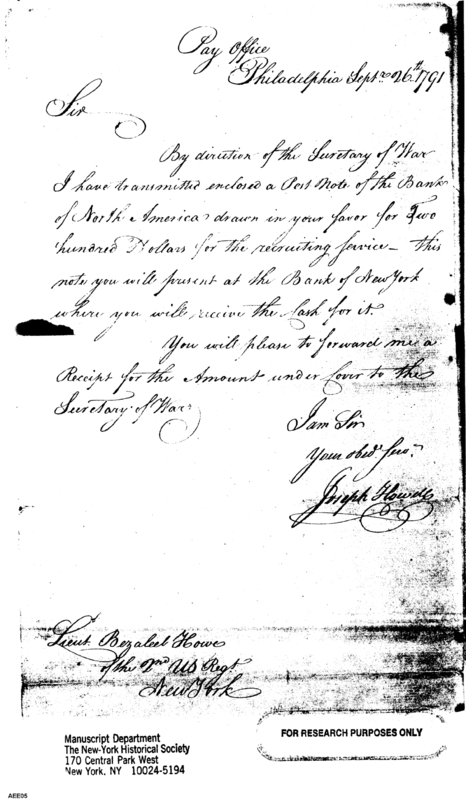 Pay Office
Philadelphia Sept. 26th 1791
Sir
By direction of the Secretary of War
I have transmitted enclosed a Post Note of the Bank
of North America drawn in your favor for Two
hundred Dollars for the recruiting service - this
note you will present at the Bank of New York
where you will receive the Cash for it.
You will please to forward me a
Receipt for the Amount under Cover to the
Secretary of War
I am Sir
Your obed. Serv.
Joseph Howell
Lieut. Bezaleel Howe
of the 2nd US Regt
New York
Manuscript Department
The New-York Historical Society
170 Central Park West
New York, NY 10024-5194
FOR RESEARCH PURPOSES ONLY
AEE05